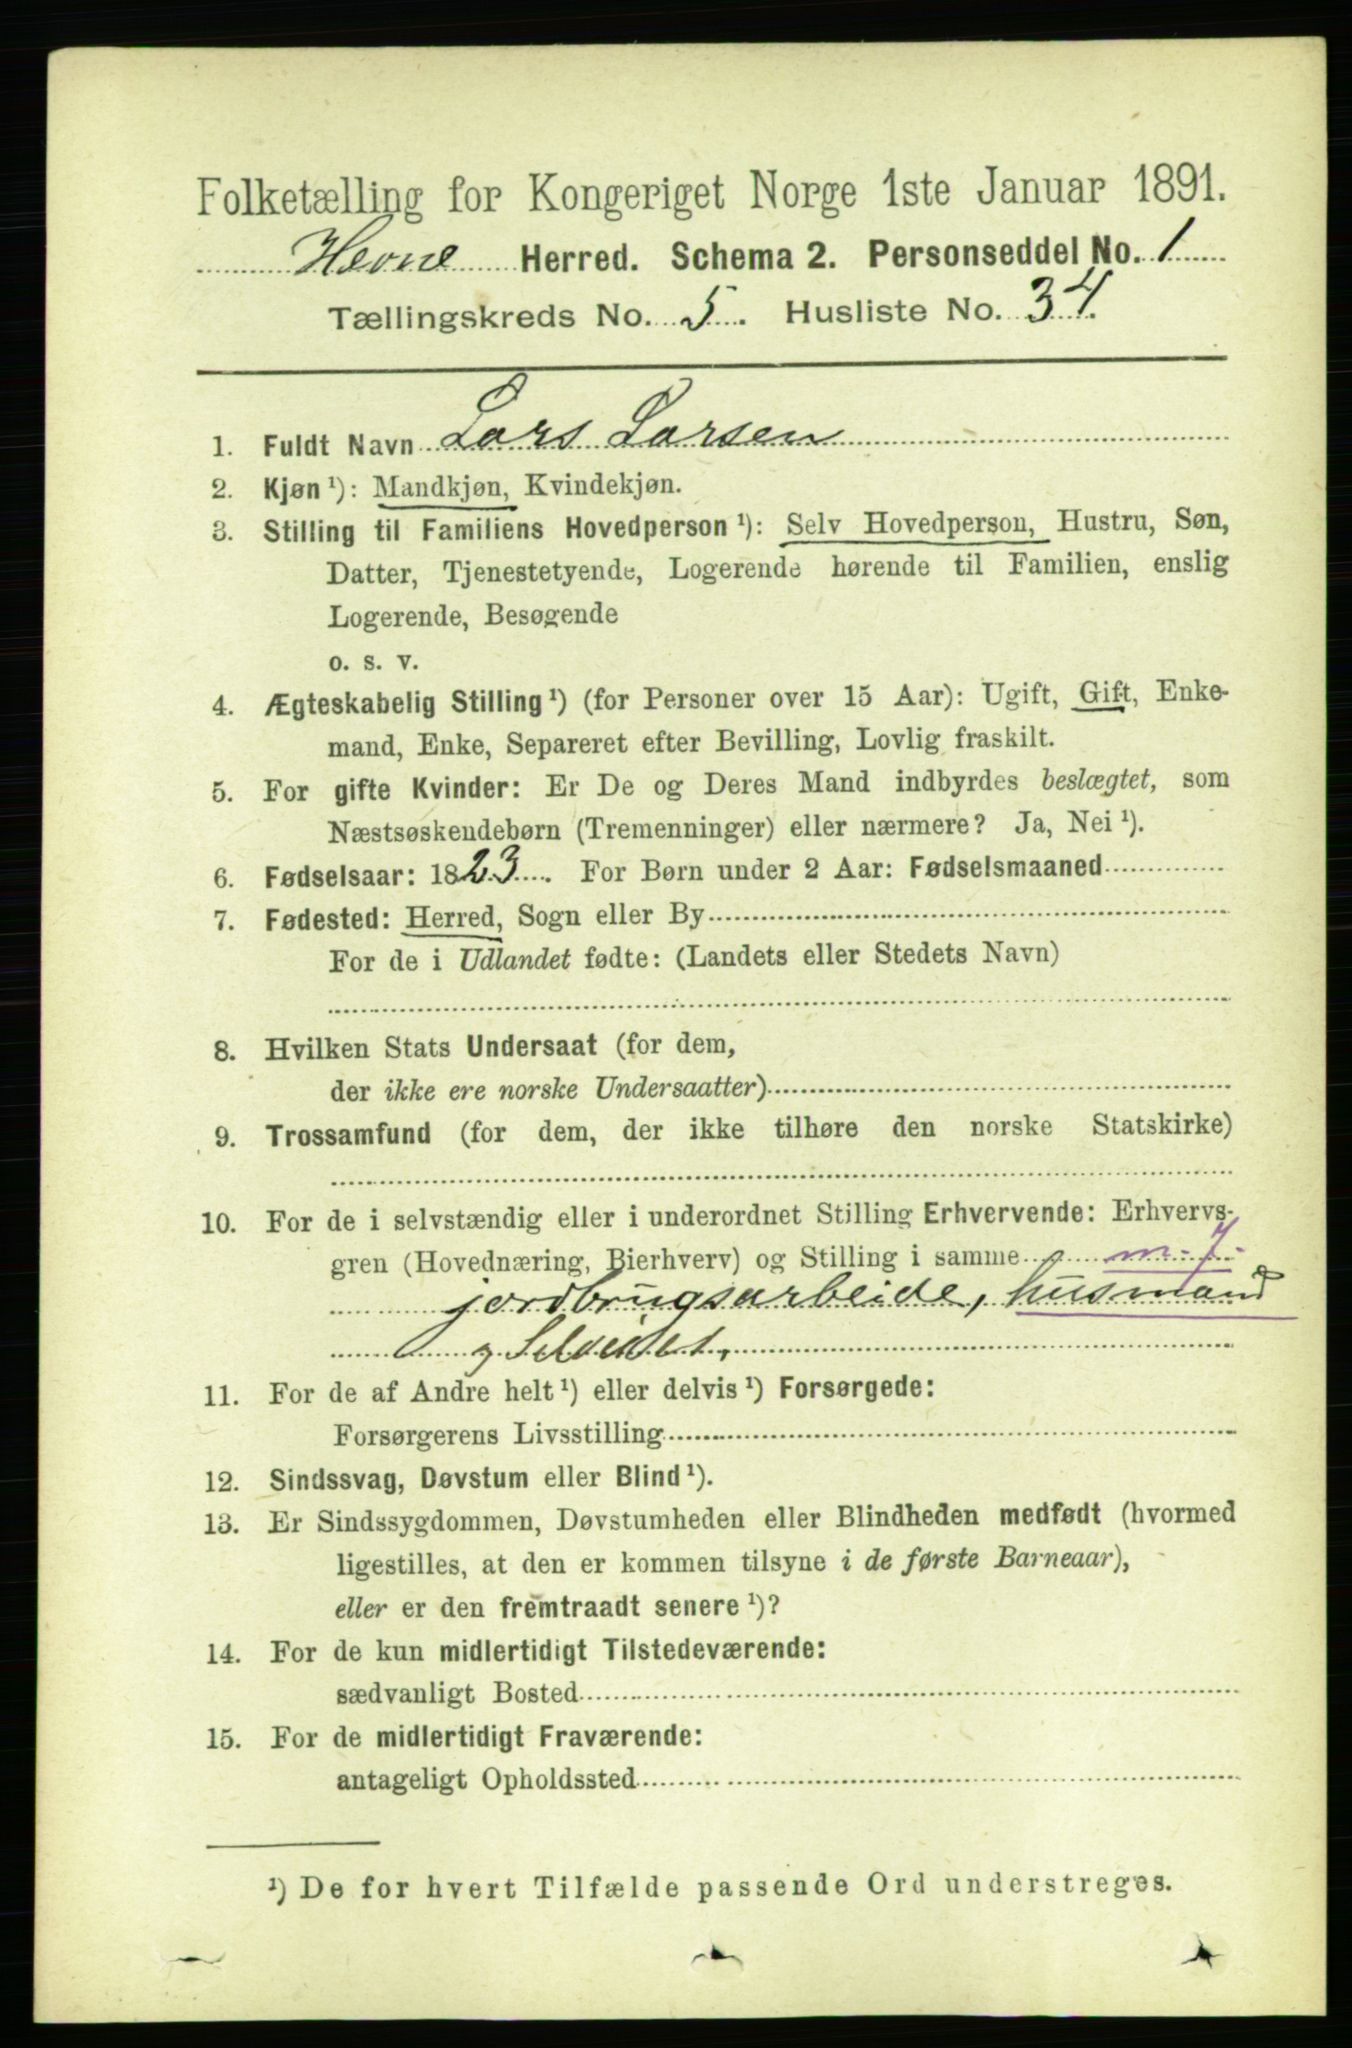 Folketælling for Kongeriget Norge 1ste Januar 1891.
Hevne Herred. Schema 2. Personseddel No. 1
Tællingskreds No. 5. Husliste No. 34.
1. Fuldt Navn Lars Larsen
2. Kjøn ¹): Mandkjøn, Kvindekjøn.
3. Stilling til Familiens Hovedperson ¹): Selv Hovedperson, Hustru, Søn,
Datter, Tjenestetyende, Logerende hørende til Familien, enslig
Logerende, Besøgende
o. s. v.
4. Ægteskabelig Stilling ¹) (for Personer over 15 Aar): Ugift, Gift, Enke-
mand, Enke, Separeret efter Bevilling, Lovlig fraskilt.
5. For gifte Kvinder: Er De og Deres Mand indbyrdes beslægtet, som
Næstsøskendebørn (Tremenninger) eller nærmere? Ja, Nei ¹).
6. Fødselsaar: 1823. For Børn under 2 Aar: Fødselsmaaned
7. Fødested: Herred, Sogn eller By
For de i Udlandet fødte: (Landets eller Stedets Navn)
8. Hvilken Stats Undersaat (for dem,
der ikke ere norske Undersaatter)
9. Trossamfund (for dem, der ikke tilhøre den norske Statskirke)
10. For de i selvstændig eller i underordnet Stilling Erhvervende: Erhvervs-
gren (Hovednæring, Bierhverv) og Stilling i samme m. 7.
jordbrugsarbeide, husmand
11. For de af Andre helt ¹) eller delvis ¹) Forsørgede:
Forsørgerens Livsstilling
12. Sindssvag, Døvstum eller Blind ¹).
13. Er Sindssygdommen, Døvstumheden eller Blindheden medfødt (hvormed
ligestilles, at den er kommen tilsyne i de første Barneaar),
eller er den fremtraadt senere ¹)?
14. For de kun midlertidigt Tilstedeværende:
sædvanligt Bosted
15. For de midlertidigt Fraværende:
antageligt Opholdssted
¹) De for hvert Tilfælde passende Ord understreges.